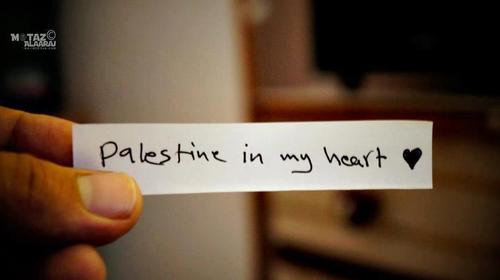 MOTAZ©
ALAARAJ
Palestine in my heart ♥